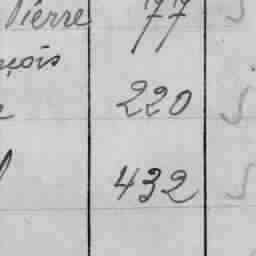 Pierre 77
çois
220
432